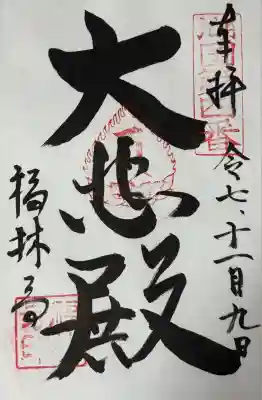 奉拝
令七、十一月九日
大悲殿
福林寺